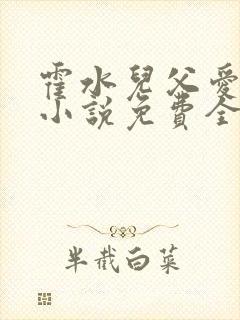 霍水兒父愛
小說免費全
半截白菜